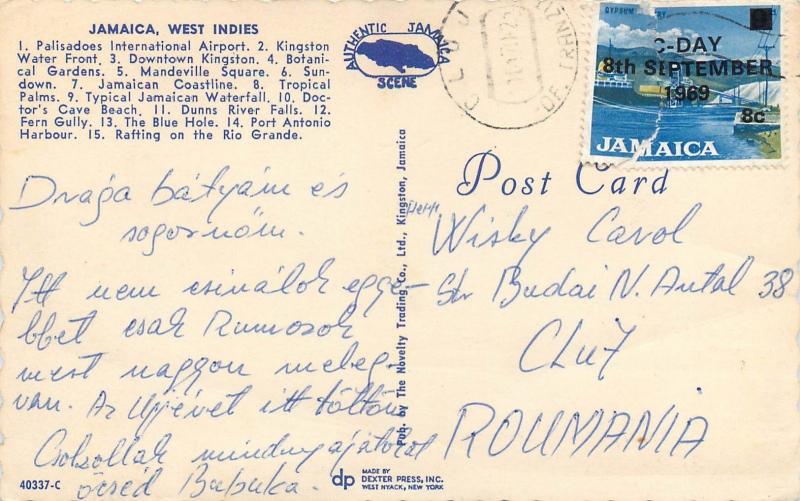 JAMAICA, WEST INDIES
1. Palisadoes International Airport. 2. Kingston
Water Front. 3. Downtown Kingston. 4. Botani-
cal Gardens. 5. Mandeville Square. 6. Sun-
down. 7. Jamaican Coastline. 8. Tropical
Palms. 9. Typical Jamaican Waterfall. 10. Doc-
tor's Cave Beach. 11. Dunns River Falls. 12.
Fern Gully. 13. The Blue Hole. 14. Port Antonio
Harbour. 15. Rafting on the Rio Grande.
AUTHENTIC JAMAICA
SCENE
CLUJ
C-DAY
8th SEPTEMBER
1969
8c
JAMAICA
Post Card
Drága bátyám és
sogornőm.
Itt nem csinálok egye-
bbet csak Rumosok
mert nagyon meleg
van. Az Ujévet itt töltöm
Csokollak mindnyájatokat
öcséd Bubuka.
Wisky Carol
Str Budai N. Antal 38
CLUJ
ROUMANIA
Pub. by The Novelty Trading Co., Ltd., Kingston, Jamaica
40337-C
dp
MADE BY
DEXTER PRESS, INC.
WEST NYACK, NEW YORK